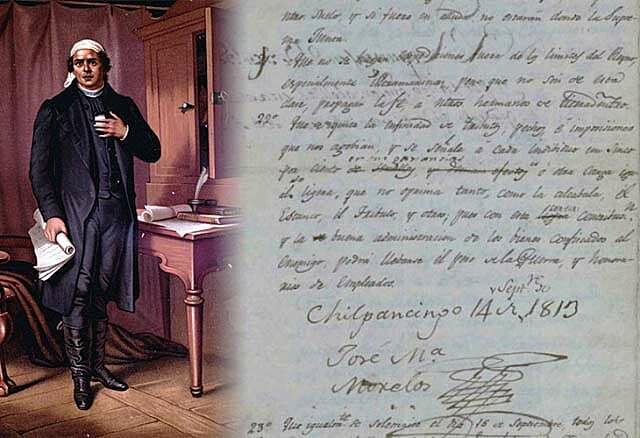 Suelo, y si fuera en ayuda no estarán donde la Supre-
ma Junta.
Que no se hagan expediciones fuera de los limites del Reyno,
especialmente Ultramarinas, pero que no son de esta
clase, propagar la fe a ntros hermanos de tierradentro.
22º Que se quite la infinidad de tributos, pechos é imposiciones
que nos agobian, y se señale a cada individuo un cinco
por ciento en sus ganancias u otra carga igual
ligera, que no oprima tanto, como la alcabala, el
Estanco, el Tributo, y otros, pues con esta corta Contribucn.
y la buena administracion de los bienes confiscados al
Enemigo, podrá llevarse el peso de la Guerra, y honora-
rios de Empleados.
Chilpancingo 14 de Septre. de 1813
José Ma
Morelos
23º Que igualmte. se solemnice el dia 16 de Septiembre, todos los